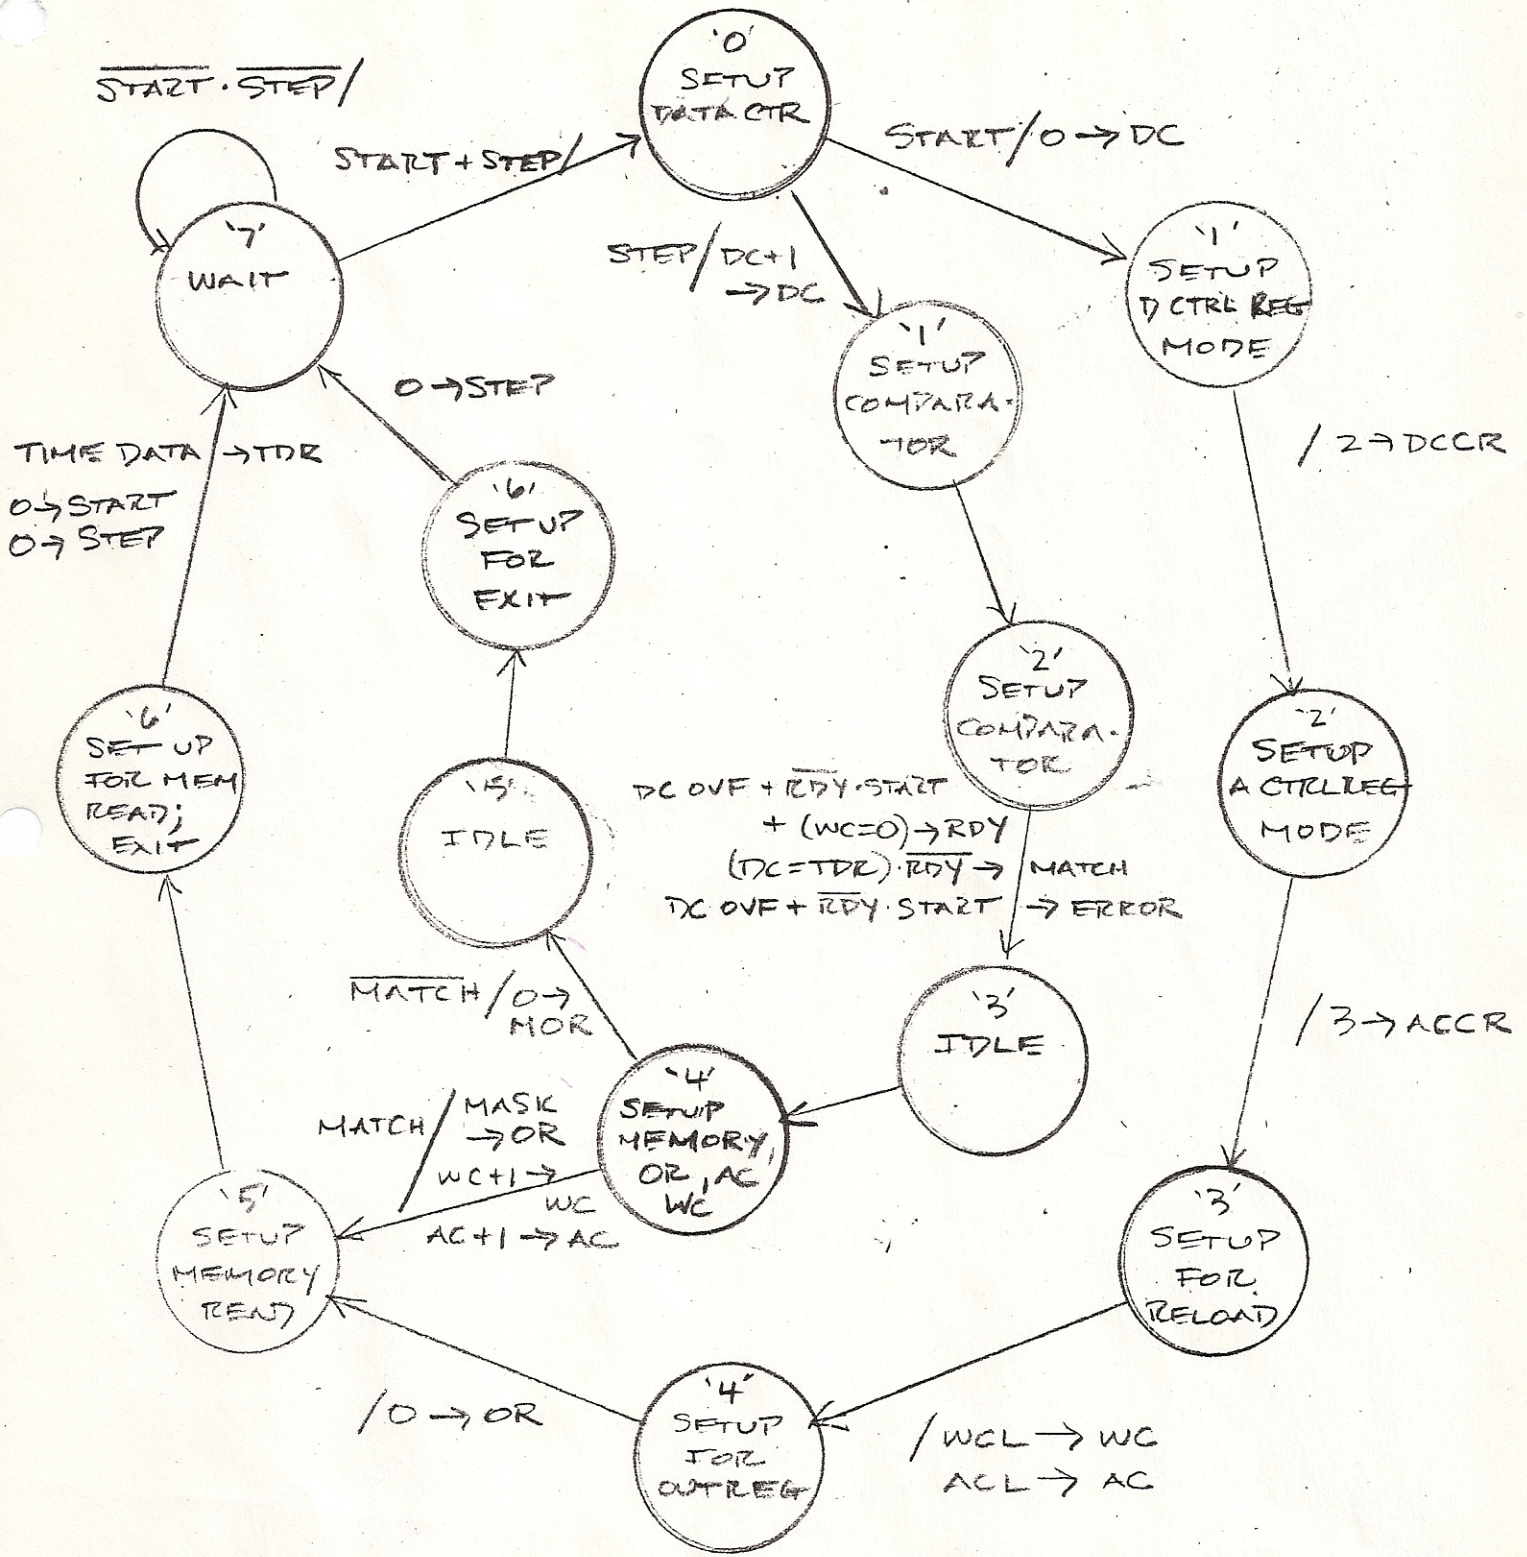 '0'
SETUP
DATA CTR
S̅T̅A̅R̅T̅ · S̅T̅E̅P̅ /
START + STEP /
START / 0 → DC
'7'
WAIT
STEP / DC+1
→ DC
'1'
SETUP
D CTRL REG
MODE
'1'
SETUP
COMPARA-
TOR
0 → STEP
TIME DATA → TDR
0 → START
0 → STEP
/ 2 → DCCR
'6'
SETUP
FOR
EXIT
'2'
SETUP
COMPARA-
TOR
'6'
SET UP
FOR MEM
READ;
EXIT
'2'
SETUP
A CTRL REG
MODE
'5'
IDLE
DC OVF + R̅D̅Y̅ · START
+ (WC=0) → RDY
(DC=TDR) · R̅D̅Y̅ → MATCH
DC OVF + R̅D̅Y̅ · START → ERROR
M̅A̅T̅C̅H̅ / 0 →
MOR
'3'
IDLE
/ 3 → ACCR
'4'
SETUP
MEMORY,
OR, AC
WC
MATCH / MASK
→ OR
WC+1 →
WC
AC+1 → AC
'5'
SETUP
MEMORY
READ
'3'
SETUP
FOR
RELOAD
/ 0 → OR
'4'
SETUP
FOR
OUTREG
/ WCL → WC
ACL → AC